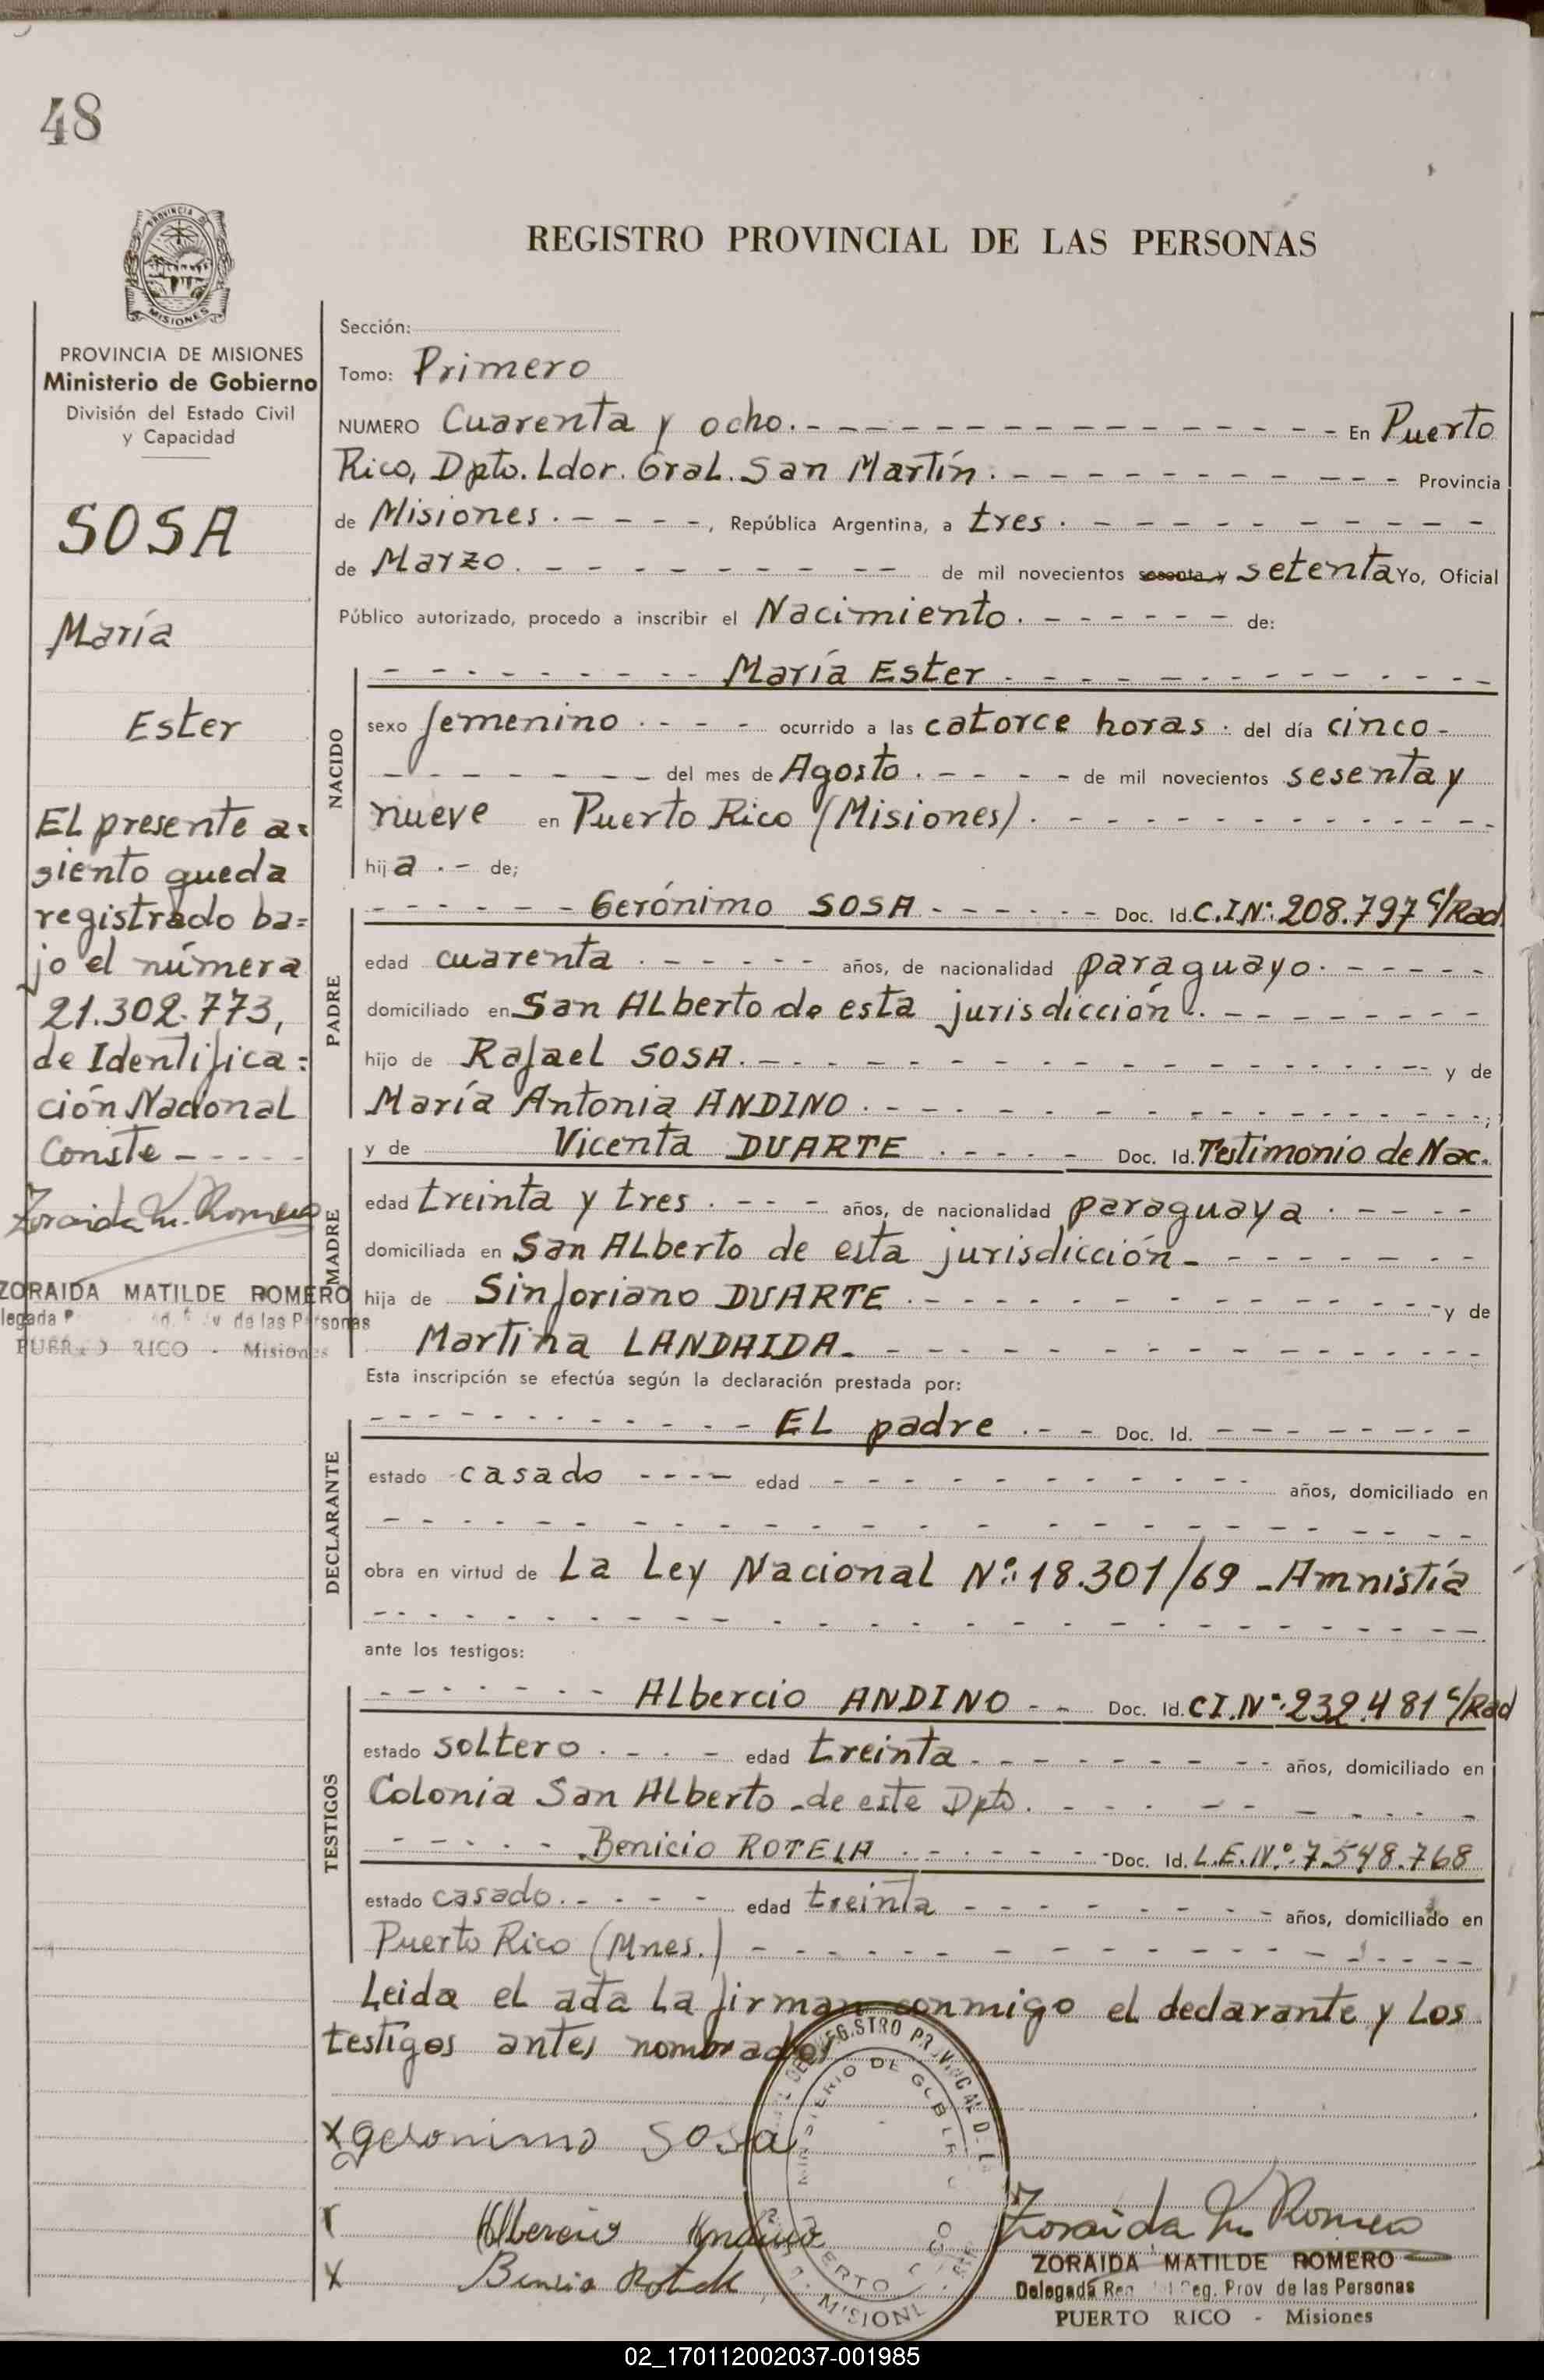 48
PROVINCIA DE
MISIONES
REGISTRO PROVINCIAL DE LAS PERSONAS
PROVINCIA DE MISIONES
Ministerio de Gobierno
División del Estado Civil
y Capacidad
SOSA
María
Ester
El presente a=
siento queda
registrado ba=
jo el número
21.302.773,
de Identifica=
ción Nacional
Conste - - - - -
Zoraida M. Romero
ZORAIDA MATILDE ROMERO
de las Personas
PUERTO RICO - Misiones
Sección:
Tomo: Primero
NUMERO Cuarenta y ocho. - - - - - - - - - - En Puerto
Rico, Dpto. Ldor. Gral. San Martín. - - - - - - - - Provincia
de Misiones. - - - - -, República Argentina, a tres. - - - - - - - -
de Marzo. - - - - - - - - - de mil novecientos sesenta y setenta Yo, Oficial
Público autorizado, procedo a inscribir el Nacimiento. - - - - - - de:
NACIDO
- - - - - - - - María Ester. - - - - - - - - - -
sexo femenino. - - - ocurrido a las catorce horas. del día cinco -
- - - - - - - del mes de Agosto. - - - - de mil novecientos sesenta y
nueve en Puerto Rico (Misiones). - - - - - - - - - -
hija. - de;
PADRE
- - - - - - Gerónimo SOSA - - - - - - Doc. Id. C.I.Nº: 208.797 c/Rad.
edad cuarenta. - - - - - años, de nacionalidad paraguayo. - - - - -
domiciliado en San Alberto de esta jurisdicción. - - - - - - -
hijo de Rafael SOSA. - - - - - - - - - - - - y de
María Antonia ANDINO. - - - - - - - - - - - - ;
MADRE
y de Vicenta DUARTE. - - - - - Doc. Id. Testimonio de Nac.
edad treinta y tres. - - - años, de nacionalidad paraguaya. - - - -
domiciliada en San Alberto de esta jurisdicción - - - - - - - -
hija de Sinforiano DUARTE. - - - - - - - - - - y de
Martina LANDAIDA. - - - - - - - - - - - -
Esta inscripción se efectúa según la declaración prestada por:
DECLARANTE
- - - - - - - - - - El padre. - - Doc. Id. - - - - - - -
estado casado - - - - edad - - - - - - - - - - años, domiciliado en
- - - - - - - - - - - - - - - - - - - -
obra en virtud de La Ley Nacional Nº: 18.301/69 - Amnistía
- - - - - - - - - - - - - - - - - - - -
ante los testigos:
TESTIGOS
- - - - - - - Albercio ANDINO - - Doc. Id. CI.Nº: 232.481 c/Rad
estado soltero. - - - edad treinta. - - - - - - - - años, domiciliado en
Colonia San Alberto - de este Dpto. - - - - - - - -
- - - - - Benicio ROTELA. - - - - - - Doc. Id. L.E.Nº: 7.548.768
estado casado. - - - - edad treinta - - - - - - - - años, domiciliado en
Puerto Rico (Mnes.) - - - - - - - - - - - - -
Leida el acta la firman conmigo el declarante y los
testigos antes nombrados
x geronimo Sosa
Albercio Andino
x Benicio Rotela
REGISTRO PROVINCIAL DE LAS
MINISTERIO DE GOBIERNO
PUERTO RICO
MISIONES
Zoraida M. Romero
ZORAIDA MATILDE ROMERO
Delegada Reg. del Reg. Prov de las Personas
PUERTO RICO - Misiones
02_170112002037-001985